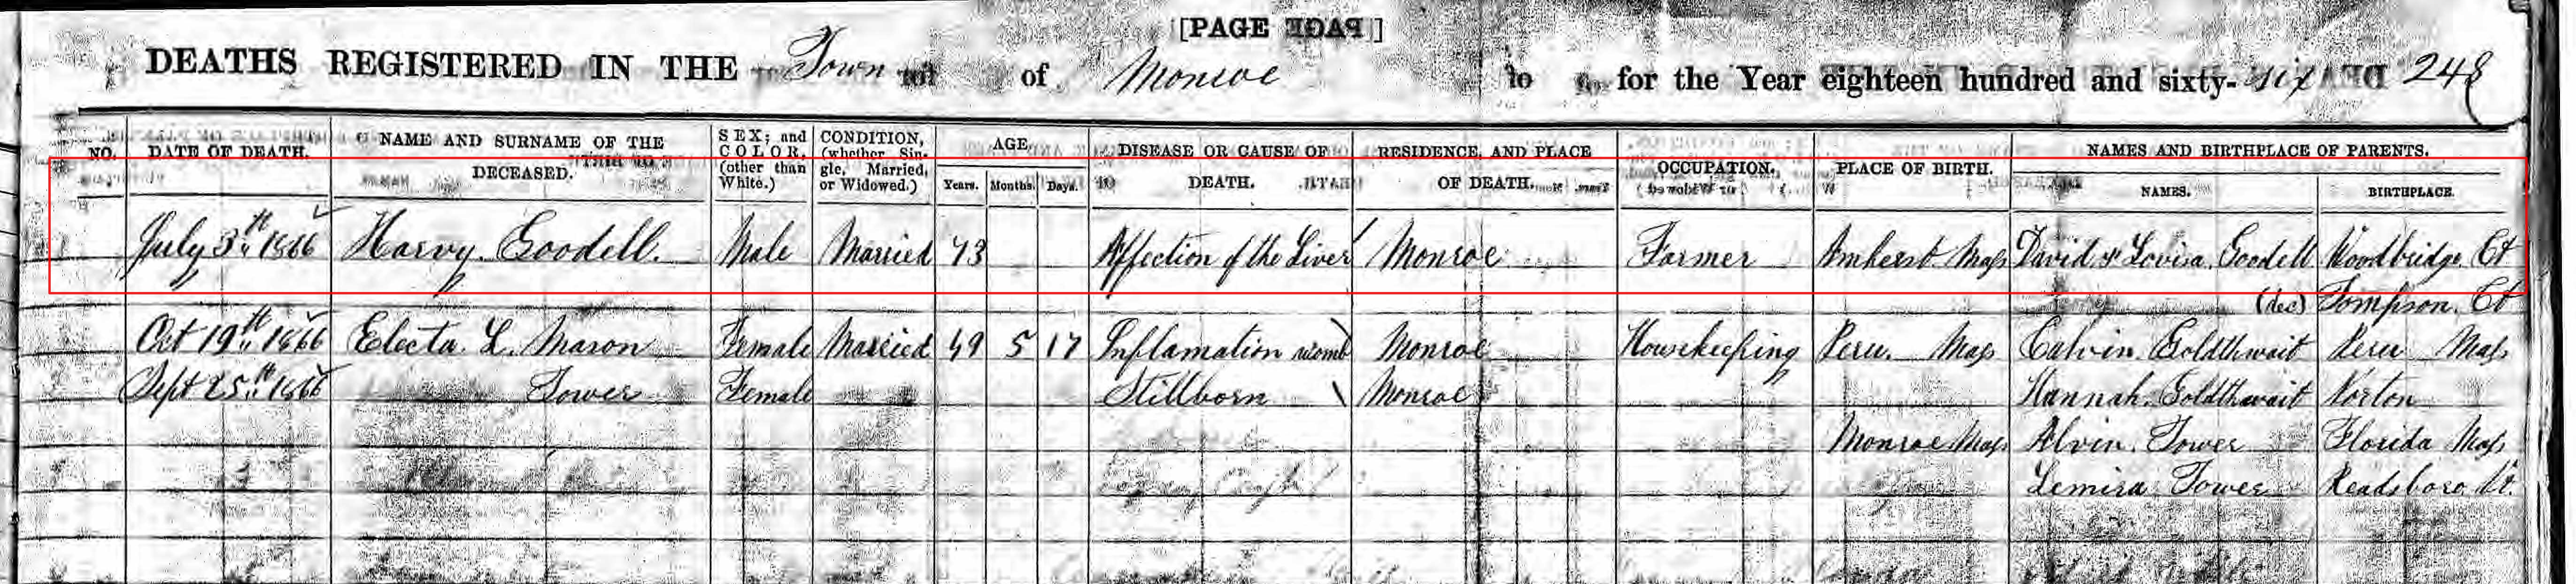 [PAGE ]
DEATHS REGISTERED IN THE Town of Monroe for the Year eighteen hundred and sixty-six 248
NO. DATE OF DEATH. NAME AND SURNAME OF THE DECEASED. SEX; and COLOR, (other than White.) CONDITION, (whether Single, Married, or Widowed.) AGE. Years. Months. Days. DISEASE OR CAUSE OF DEATH. RESIDENCE, AND PLACE OF DEATH. OCCUPATION. PLACE OF BIRTH. NAMES AND BIRTHPLACE OF PARENTS. NAMES. BIRTHPLACE.
July 3th 1866 Harvy Goodell. Male Married 73 Affection of the Liver Monroe Farmer Amherst Mass David & Lovisa Goodell Woodbridge Ct
(dec) Tompson. Ct
Oct 19th 1866 Electa. L. Mason Female Married 49 5 17 Inflamation womb Monroe Housekeeping Peru. Mass Calvin. Goldthwait Peru Mass
Sept 25th 1866 Tower Female Stillborn Monroe Hannah. Goldthwait Norton
Monroe Mass Alvin. Tower Florida Mass
Lemira Tower Readsboro Vt.